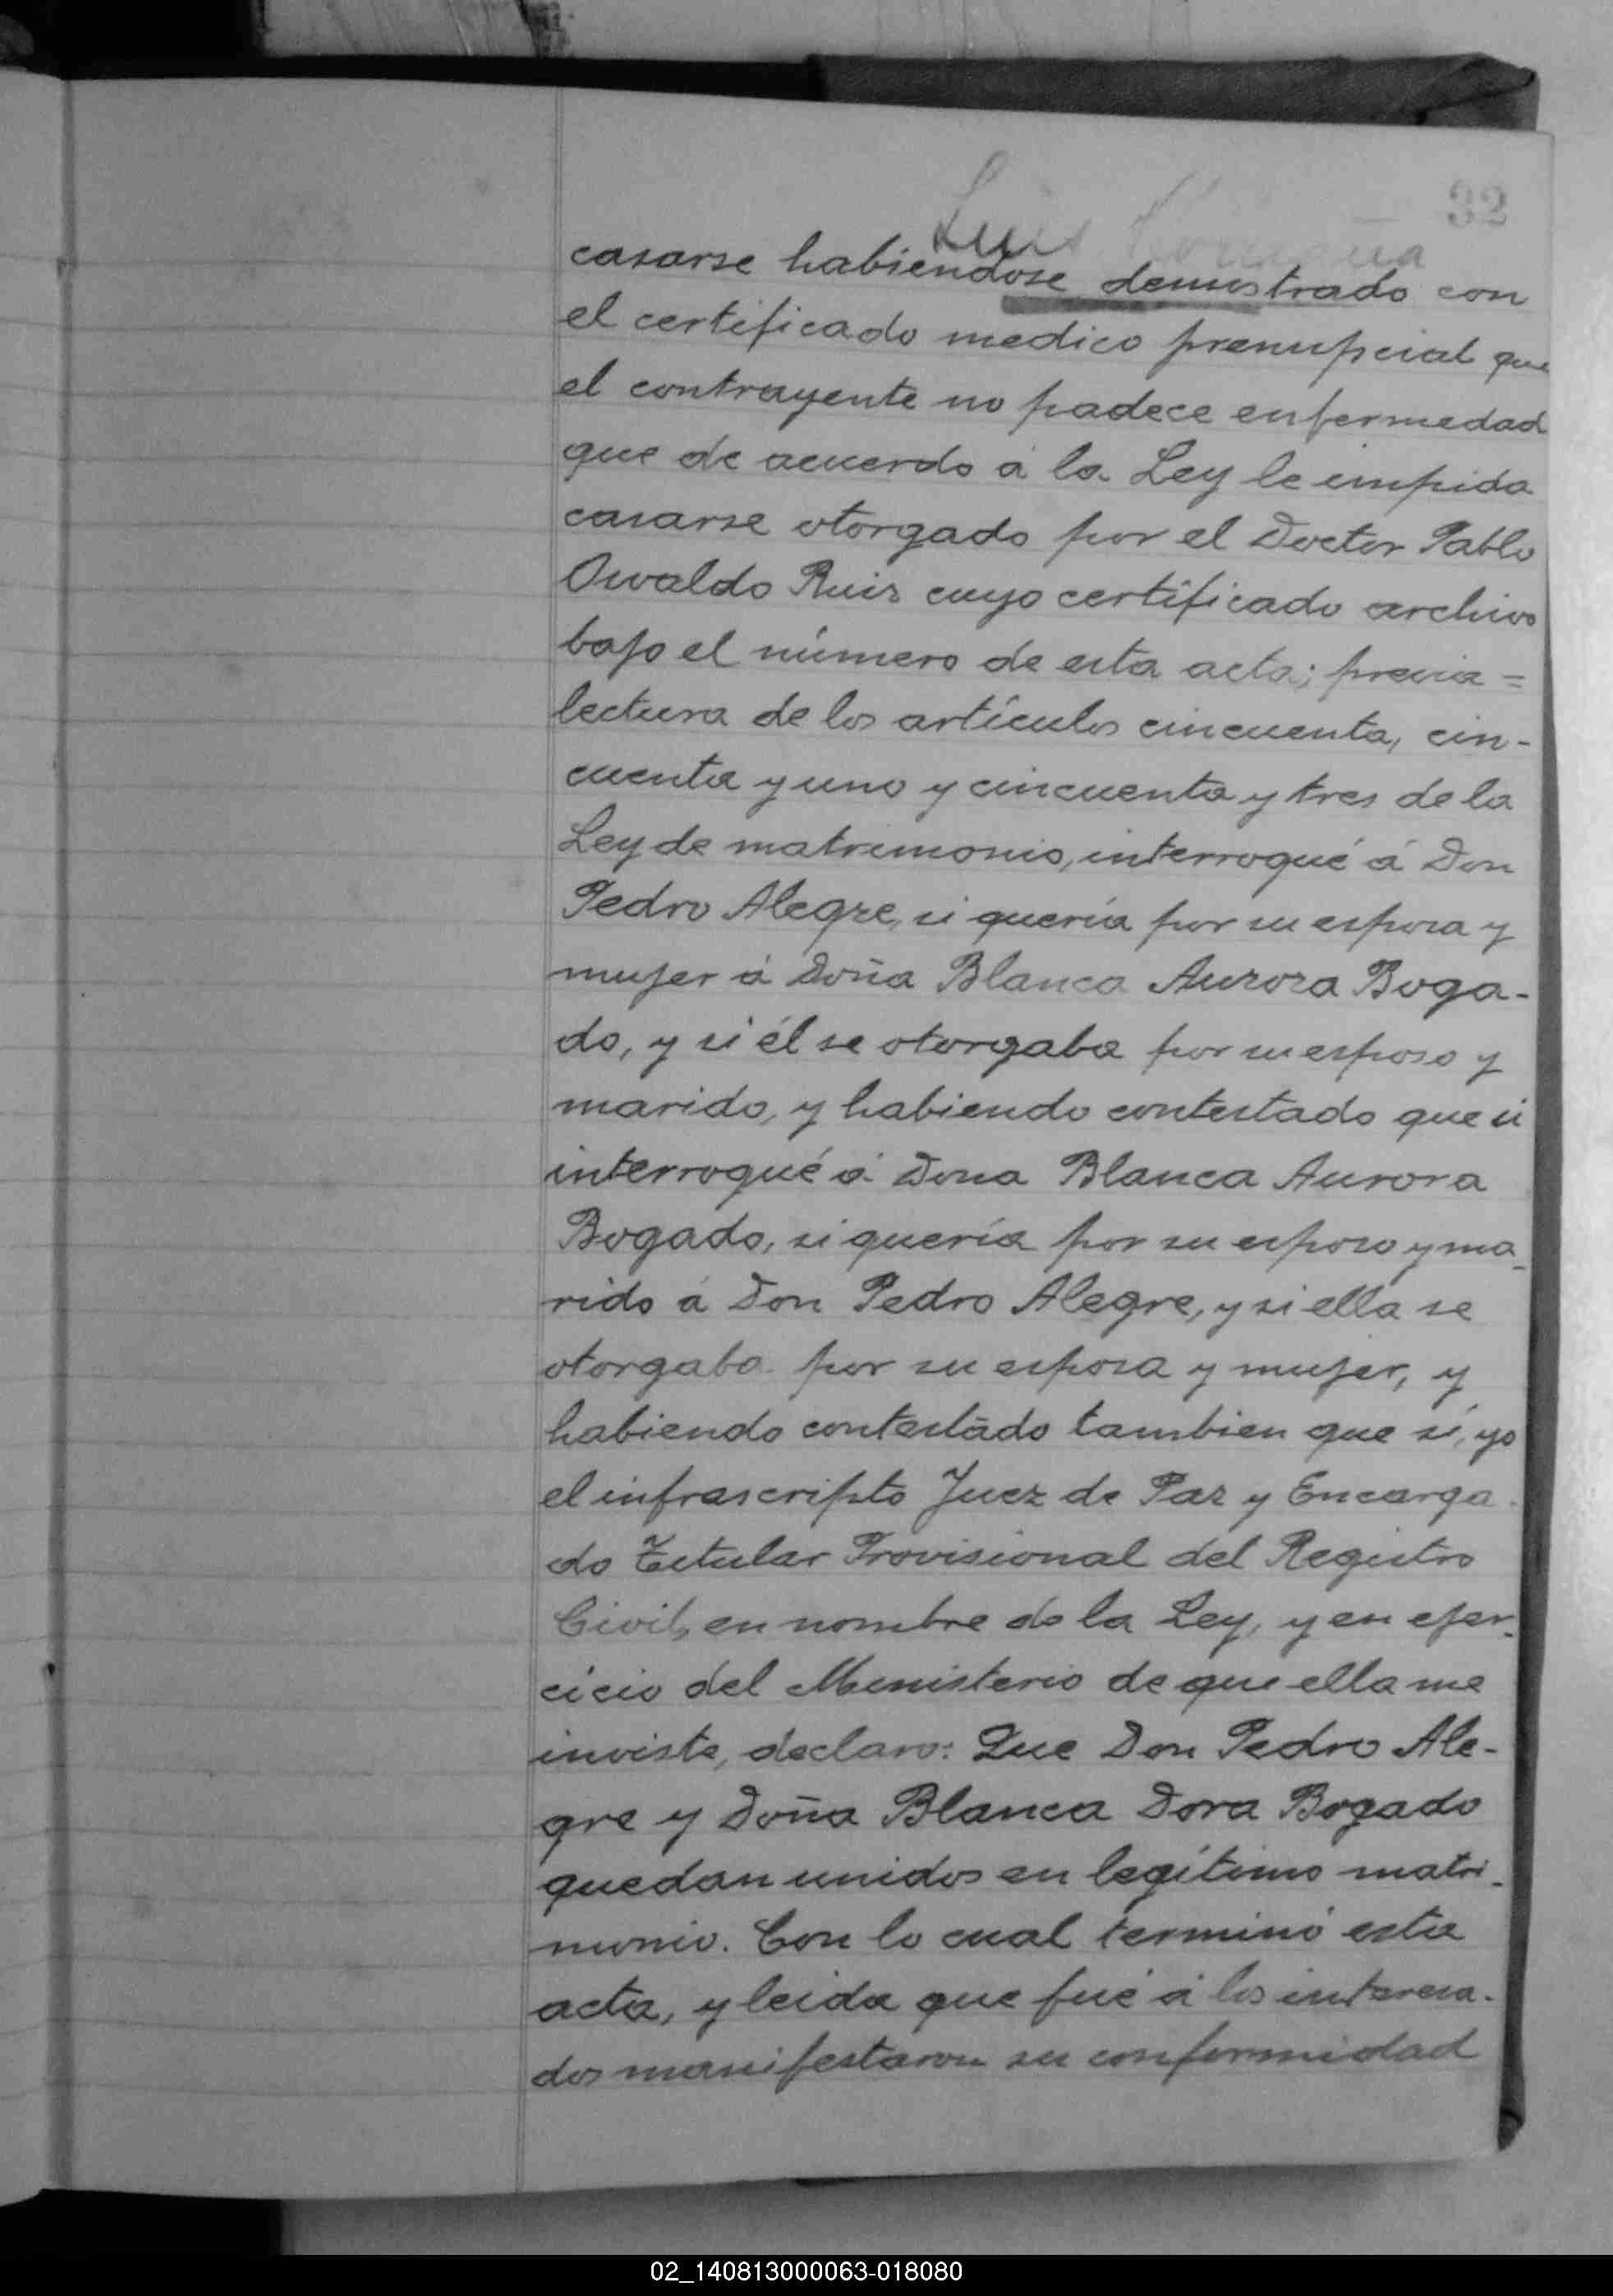 32
Luis
casarse habiendose demostrado con
el certificado medico prenupcial que
el contrayente no padece enfermedad
que de acuerdo á la Ley le impida
casarse otorgado por el Doctor Pablo
Osvaldo Ruiz cuyo certificado archivo
bajo el número de esta acta; previa =
lectura de los artículos cincuenta, cin-
cuenta y uno y cincuenta y tres de la
Ley de matrimonio, interrogué á Don
Pedro Alegre, si quería por su esposa y
mujer á Doña Blanca Aurora Boga-
do, y si él se otorgaba por su esposo y
marido, y habiendo contestado que si
interrogué á Dona Blanca Aurora
Bogado, si quería por su esposo y ma-
rido á Don Pedro Alegre, y si ella se
otorgaba por su esposa y mujer, y
habiendo contestado tambien que sí, yo
el infrascripto Juez de Paz y Encarga-
do Titular Provisional del Registro
Civil, en nombre de la Ley, y en ejer-
cicio del Ministerio de que ella me
inviste, declaro: Que Don Pedro Ale-
gre y Doña Blanca Dora Bogado
quedan unidos en legítimo matri-
monio. Con lo cual terminó esta
acta, y leida que fué á los interesa-
dos manifestaron su conformidad
02_140813000063-018080